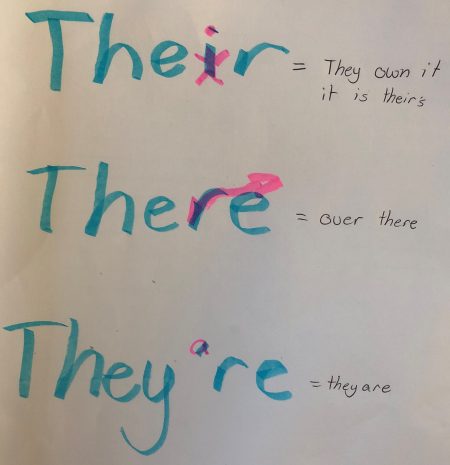 Their = They own it
it is their's
There = over there
They're = they are